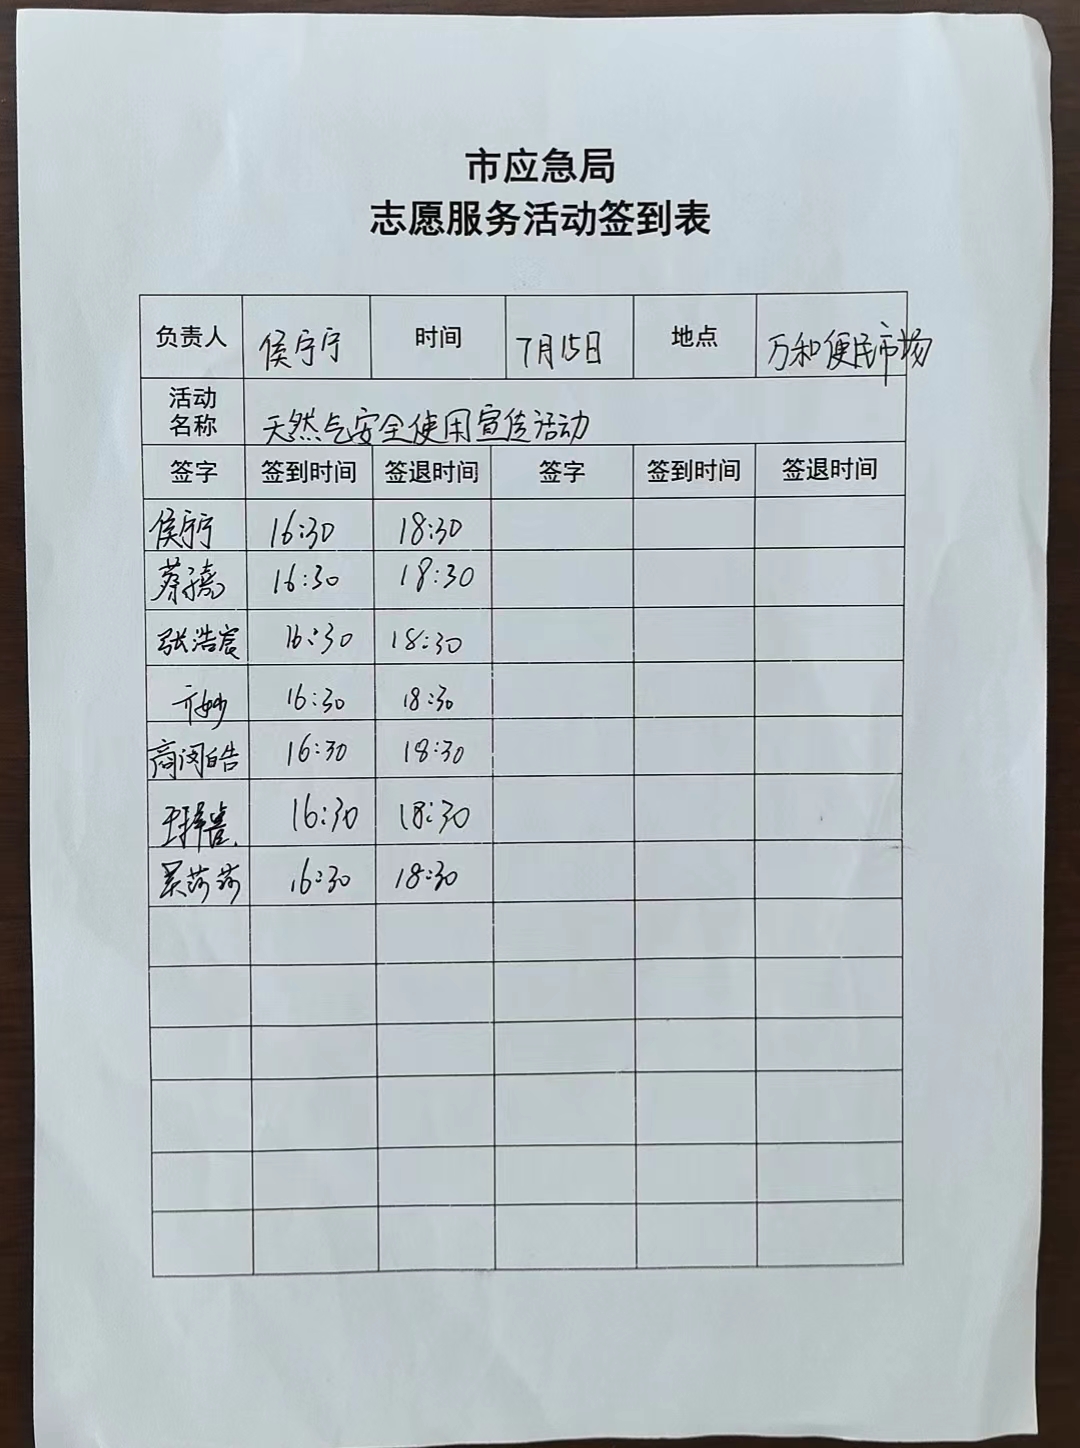 市应急局
志愿服务活动签到表
负责人 侯宁宁 时间 7月15日 地点 万和便民市场
活动名称 天然气安全使用宣传活动
签字 签到时间 签退时间 签字 签到时间 签退时间
侯宁宁 16:30 18:30
蔡 16:30 18:30
张浩宸 16:30 18:30
亓妙 16:30 18:30
商闵皓 16:30 18:30
王 16:30 18:30
吴莎莎 16:30 18:30